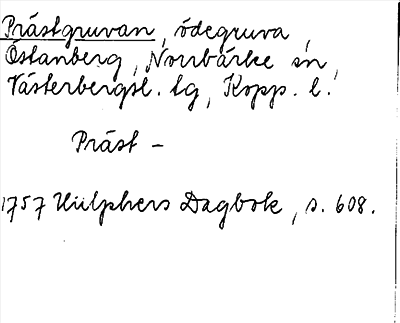 Prästgruvan, ödegruva,
Östanberg, Norrbärke sn,
Västerbergsl. tg, Kopp. l.
Präst –
1757 Hülphers Dagbok, s. 608.